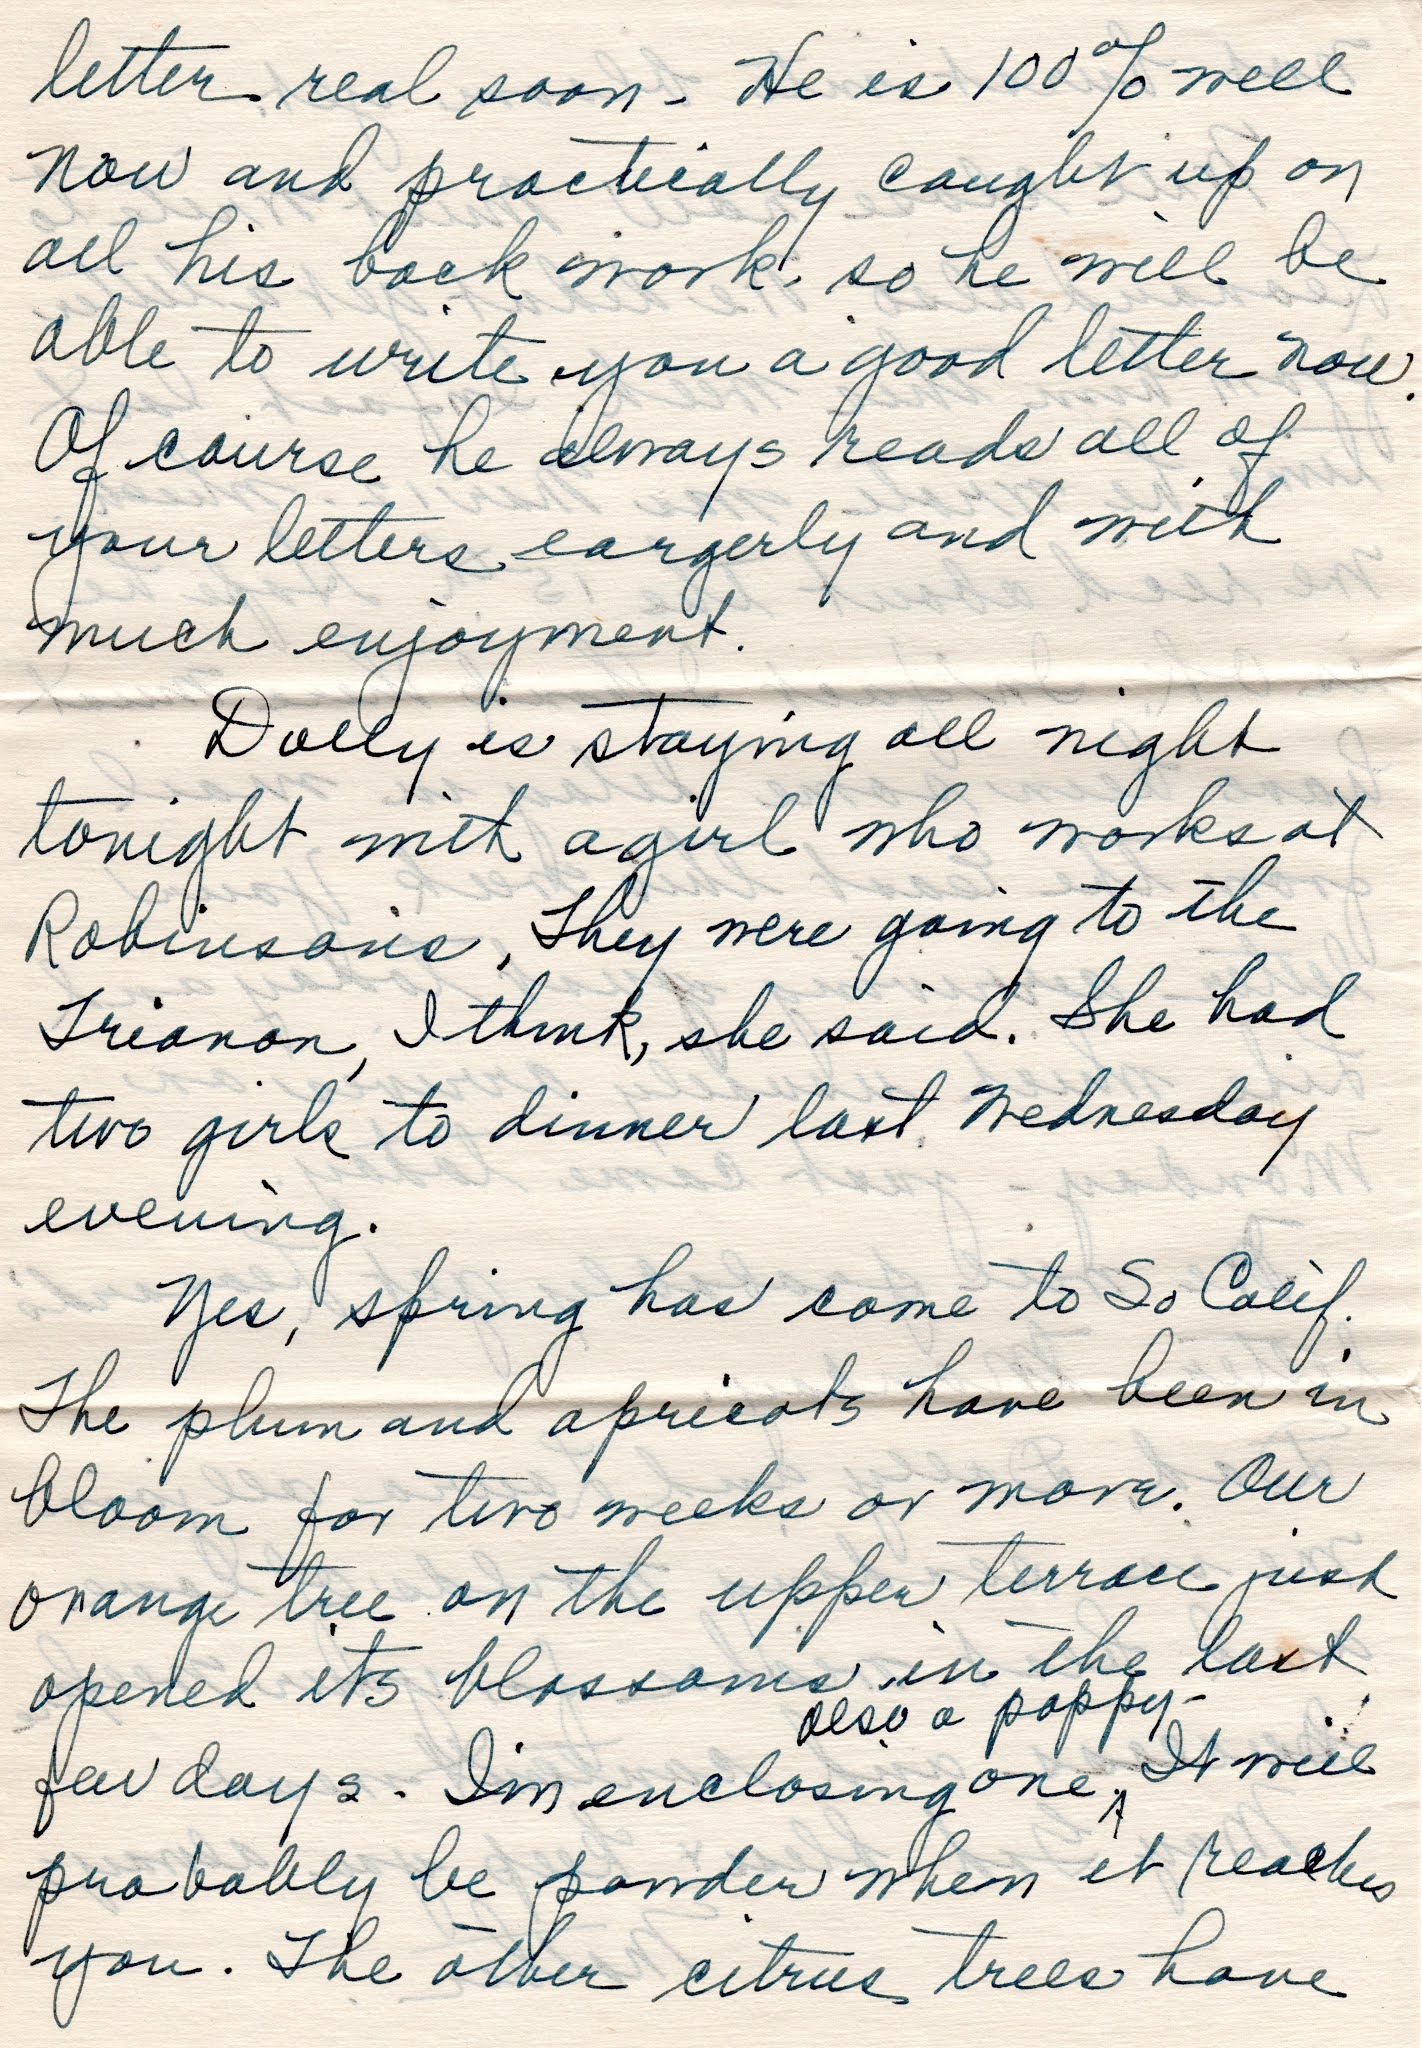 letter real soon - He is 100% well
now and practically caught up on
all his back work, so he will be
able to write you a good letter now.
Of course he always reads all of
your letters eargerly and with
much enjoyment.
Dolly is staying all night
tonight with a girl who works at
Robinsons, They were going to the
Trianon, I think, she said. She had
two girls to dinner last Wednesday
evening.
Yes, spring has come to So Calif.
The plum and apricots have been in
bloom for two weeks or more. Our
orange tree on the upper terrace just
opened its blossoms in the last
also a poppy -
few days. I'm enclosing one ^ It will
probably be powder when it reaches
you. The other citrus trees have